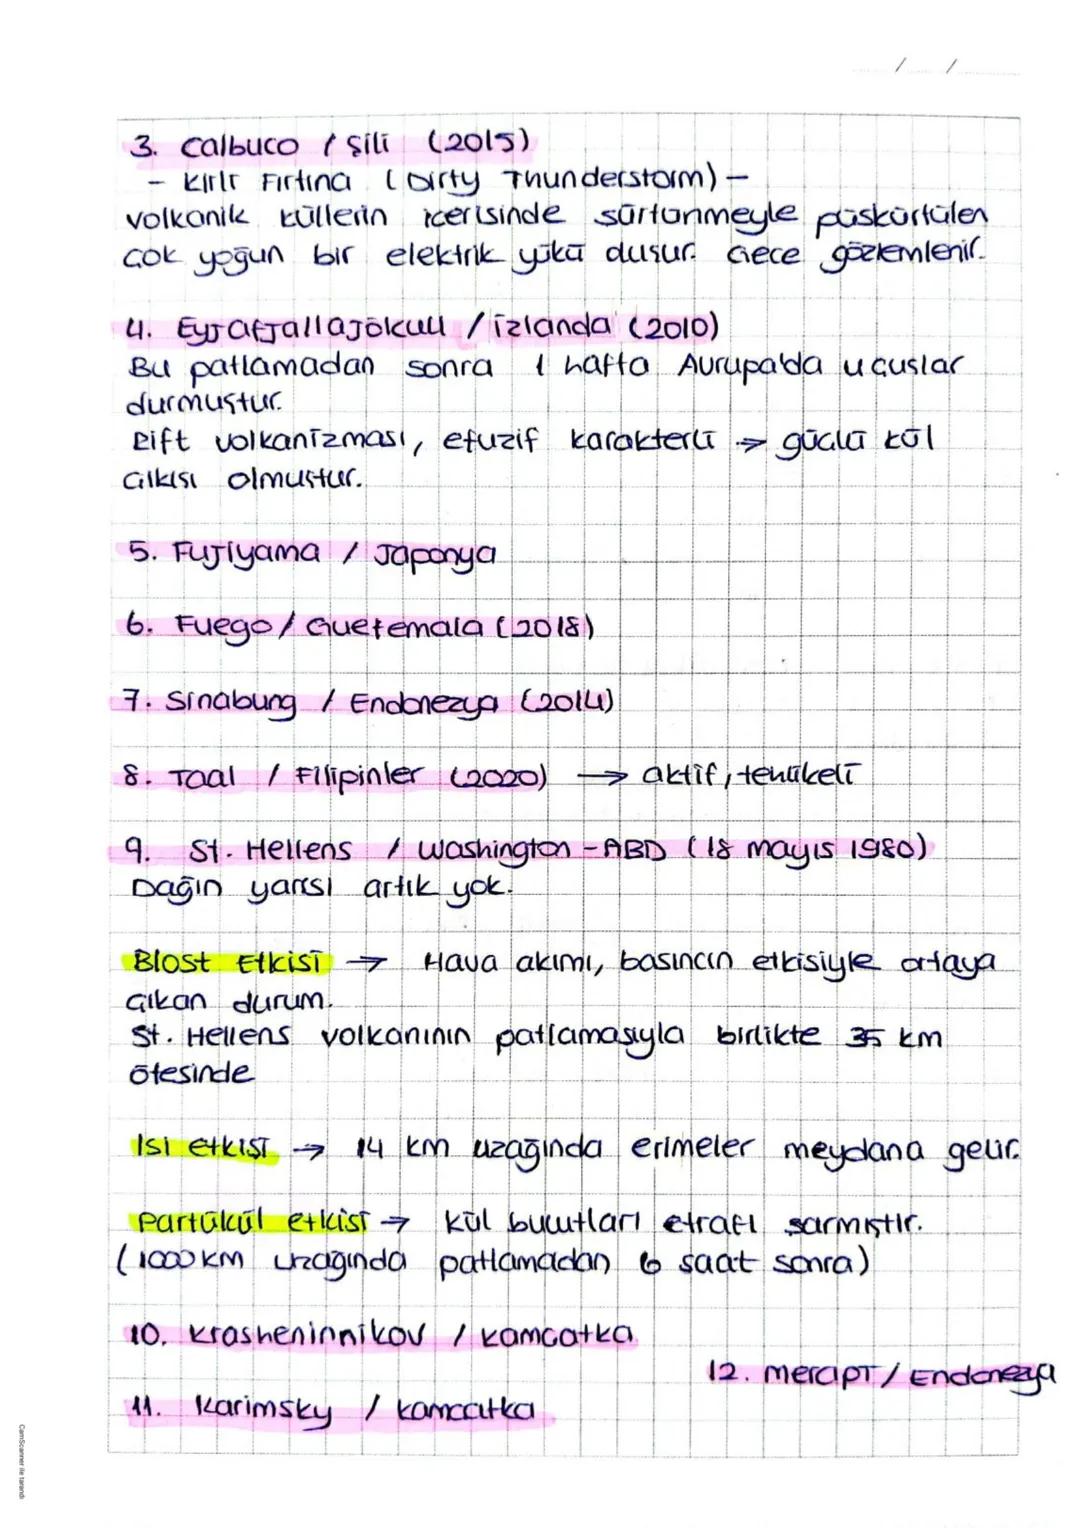 3. Calbuco / Şili (2015)
- Kirli Fırtına (Dirty Thunderstorm) -
volkanik küllerin içerisinde sürtünmeyle püskürtülen
çok yoğun bir elektrik yükü oluşur. Gece gözlemlenir.
4. Eyjafjallajökull / İzlanda (2010)
Bu patlamadan sonra 1 hafta Avrupa'da uçuşlar
durmuştur.
Rift volkanizması, efuzif karakterli → güçlü kül
çıkışı olmuştur.
5. Fujiyama / Japonya
6. Fuego / Guetemala (2018)
7. Sinabung / Endonezya (2014)
8. Taal / Filipinler (2020) → aktif, tehlikeli
9. St. Hellens / Washington - ABD (18 mayıs 1980)
Dağın yarısı artık yok.
Blost Etkisi → Hava akımı, basıncın etkisiyle ortaya
çıkan durum.
St. Hellens volkanının patlamasıyla birlikte 35 km
ötesinde
Isı etkisi → 14 km uzağında erimeler meydana gelir.
Partükül etkisi → Kül bulutları etrafı sarmıştır.
(1000 km uzağında patlamadan 6 saat sonra)
10. Krasheninnikov / Kamçatka
12. Merapi / Endonezya
11. Karimsky / Kamçatka
CamScanner ile tarandı